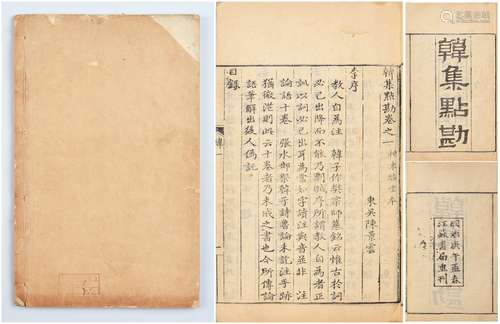 韓集點勘卷之一
東吳陳景雲
李序
教人自為注 韓子作樊宗師墓銘云惟古於詞
必己出降而不能乃剽賊序所謂教人自為者正
訓以詞必己出耳為當如字讀注與音並非 注
論語十卷 張水部祭韓子詩魯論未訖注手跡
猶微茫則此云十卷者乃未成之書也今所傳論
語筆解出後人偽託
目錄
韓集點勘
同治庚午孟春
江蘇書局重刊